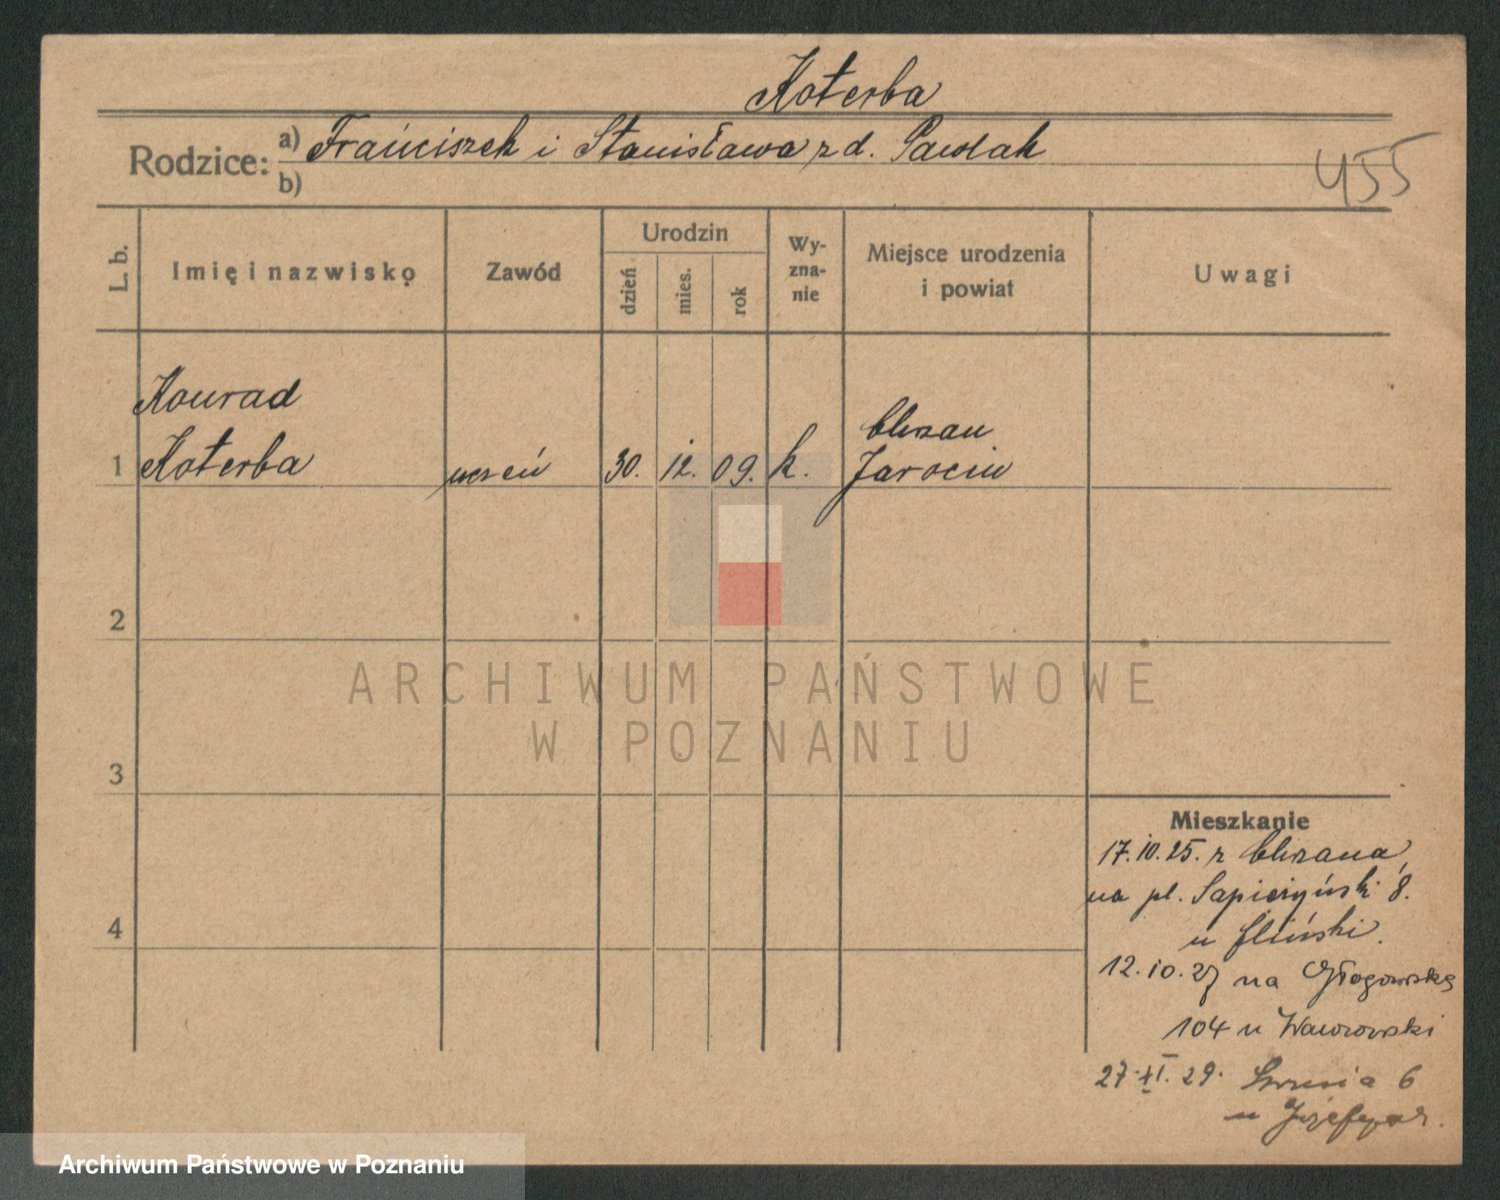 Koterba
Rodzice: a) Franciszek i Stanisława z d. Pawlak
b)
455
L. b.
Imię i nazwisko
Zawód
Urodzin
dzień
mies.
rok
Wy-
zna-
nie
Miejsce urodzenia
i powiat
Uwagi
Konrad
1 Koterba uczeń 30. 12. 09. k.
Chrzan
Jarocin
2
3
4
ARCHIWUM PAŃSTWOWE
W POZNANIU
Mieszkanie
17.10.25. z Chrzana
na pl. Sapieżyński 8.
u
12.10.27 na Głogowską
104 u Wawrowski
27.XI.29. 6
u
Archiwum Państwowe w Poznaniu